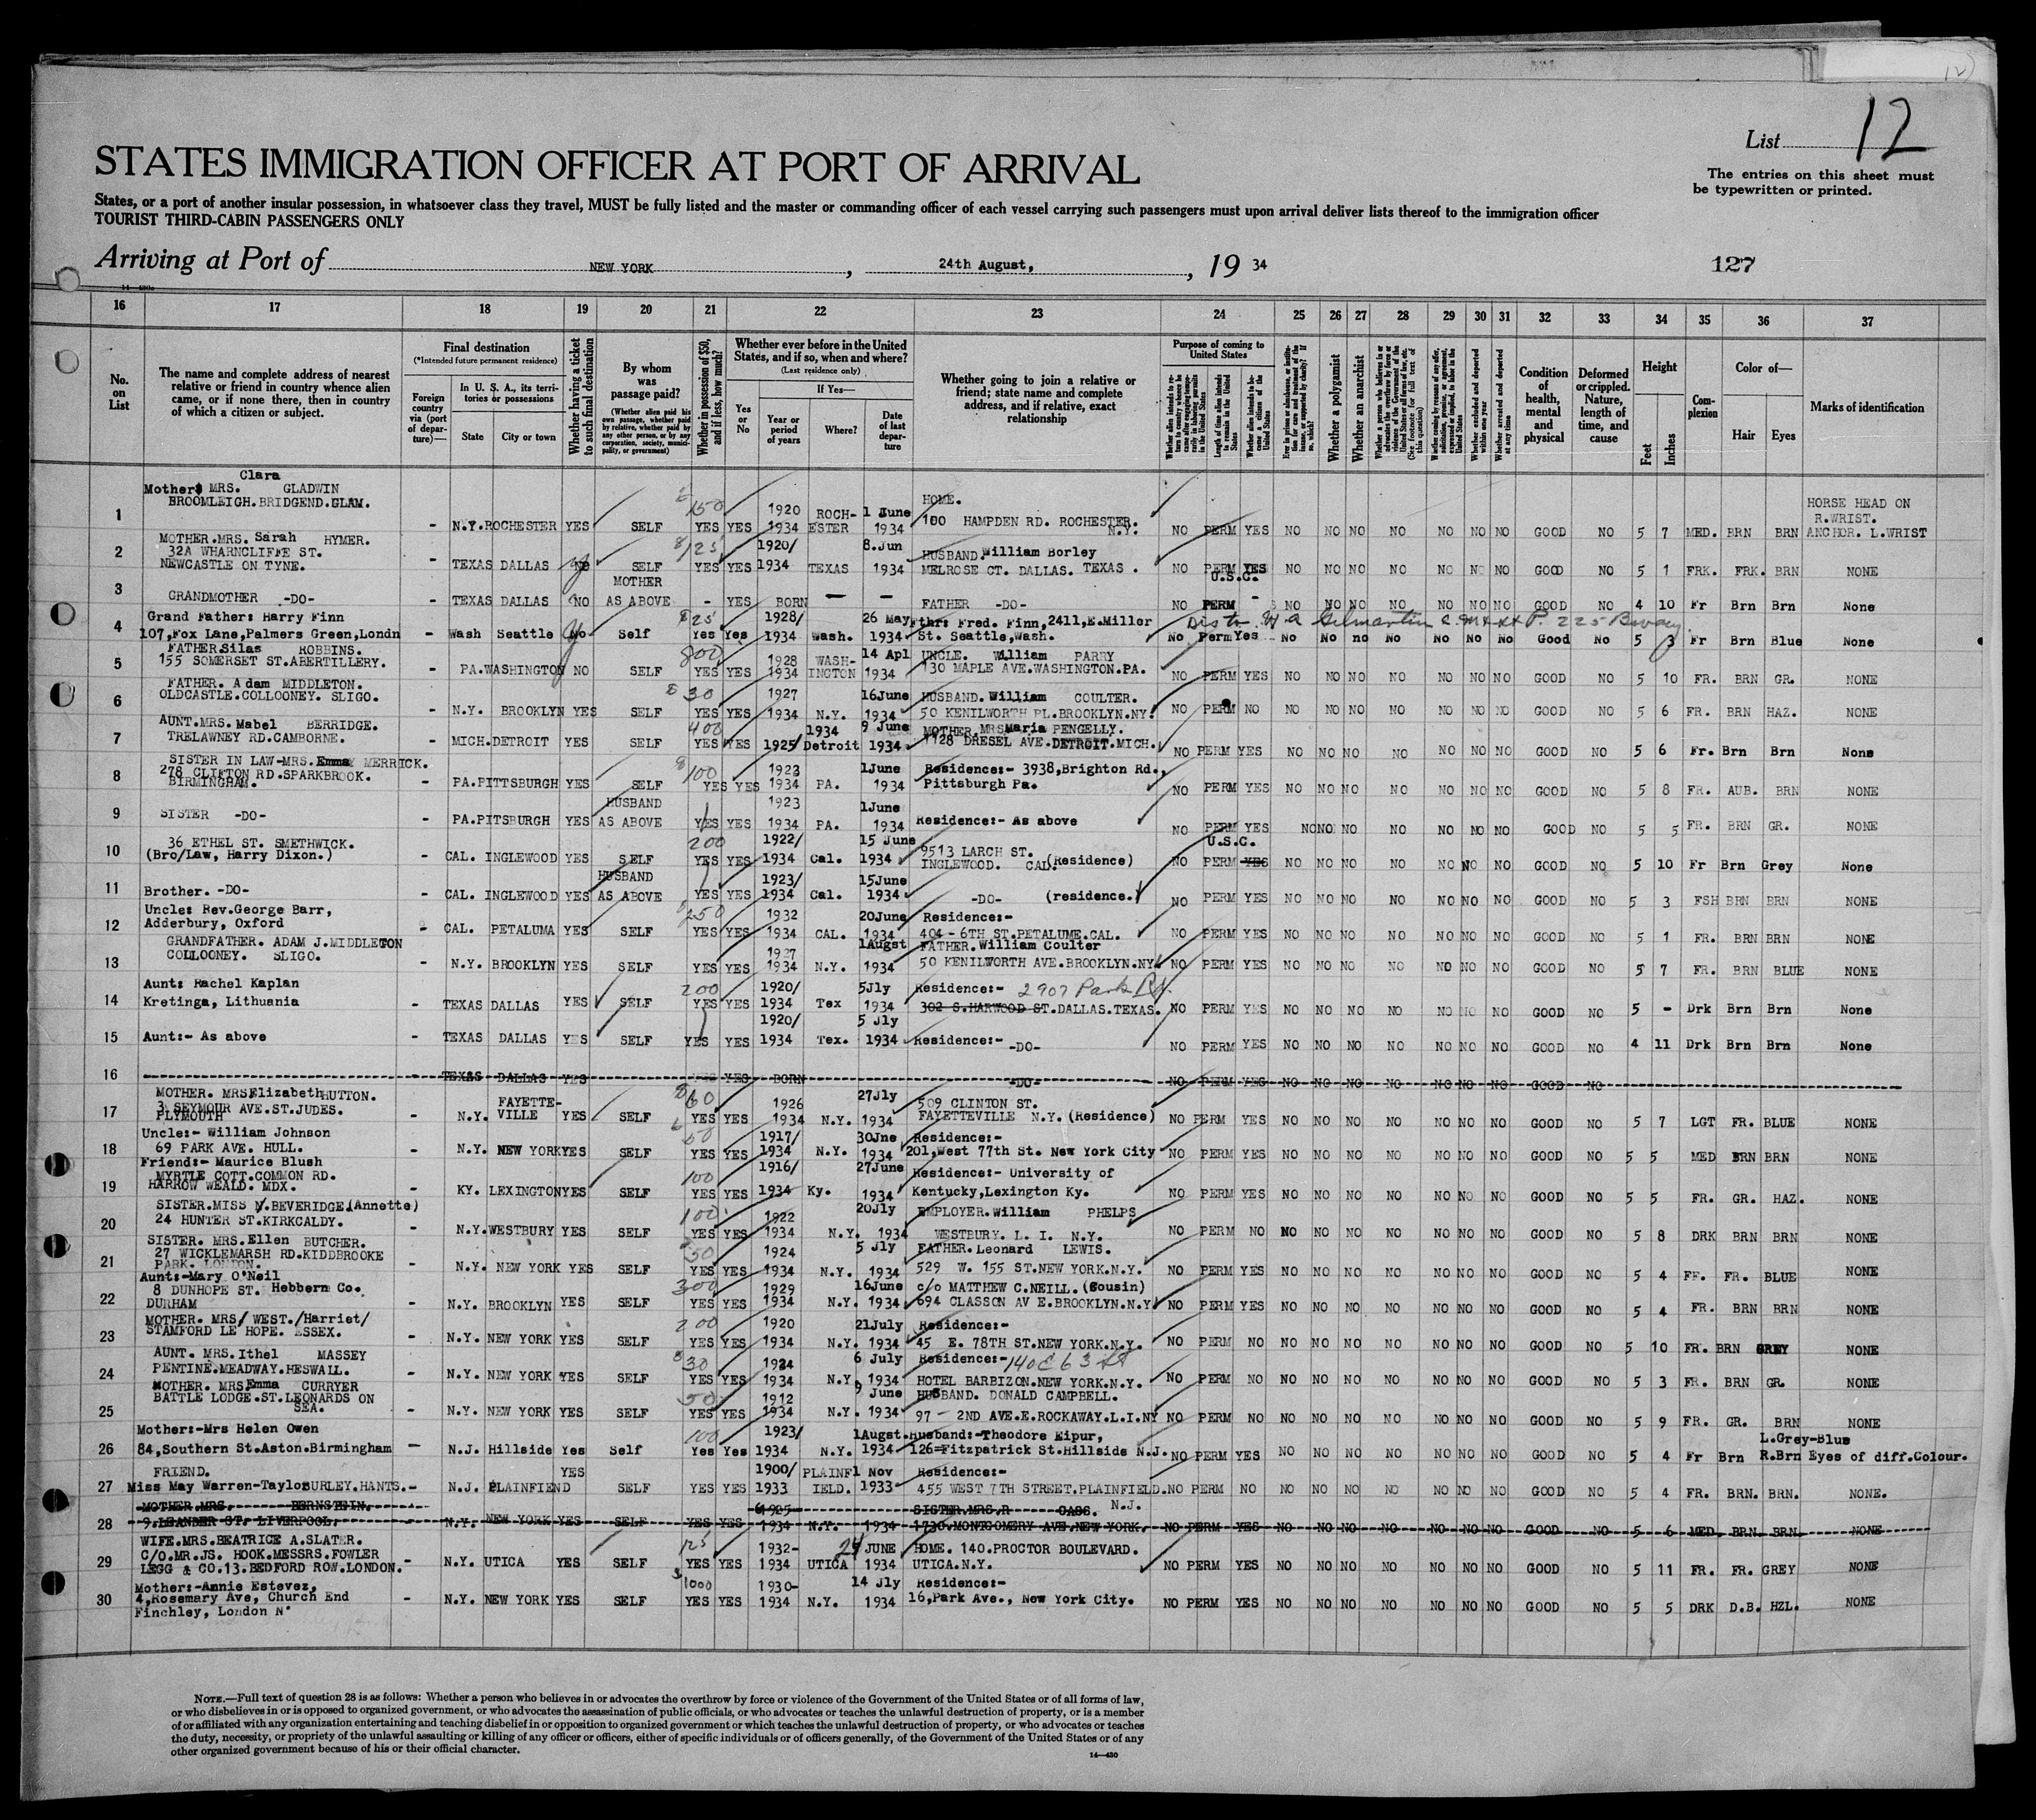 12
List 12
STATES IMMIGRATION OFFICER AT PORT OF ARRIVAL
The entries on this sheet must
be typewritten or printed.
States, or a port of another insular possession, in whatsoever class they travel, MUST be fully listed and the master or commanding officer of each vessel carrying such passengers must upon arrival deliver lists thereof to the immigration officer
TOURIST THIRD-CABIN PASSENGERS ONLY
Arriving at Port of NEW YORK, 24th August, 19 34
127
16 17 18 19 20 21 22 23 24 25 26 27 28 29 30 31 32 33 34 35 36 37
No. on List
The name and complete address of nearest relative or friend in country whence alien came, or if none there, then in country of which a citizen or subject.
Final destination
(*Intended future permanent residence)
Foreign country via (port of departure)—
In U. S. A., its territories or possessions
State
City or town
Whether having a ticket to such final destination
By whom was passage paid?
(Whether alien paid his own passage, whether paid by relative, whether paid by any other person, or by any corporation, society, municipality, or government)
Whether in possession of $50, and if less, how much?
Whether ever before in the United States, and if so, when and where?
(Last residence only)
Yes or No
If Yes—
Year or period of years
Where?
Date of last departure
Whether going to join a relative or friend; state name and complete address, and if relative, exact relationship
Purpose of coming to United States
Whether a polygamist
Whether an anarchist
Condition of health, mental and physical
Deformed or crippled. Nature, length of time, and cause
Height
Feet
Inches
Complexion
Color of—
Hair
Eyes
Marks of identification
1 Mother: MRS. Clara GLADWIN BROOMLEIGH.BRIDGEND.GLAM. - N.Y. ROCHESTER YES SELF 150 YES YES 1920 1934 ROCHESTER 1 June 1934 HOME. 100 HAMPDEN RD. ROCHESTER. N.Y. NO PERM YES NO NO NO NO NO NO NO GOOD NO 5 7 MED. BRN BRN HORSE HEAD ON R.WRIST. ANCHOR. L.WRIST
2 MOTHER.MRS. Sarah HYMER. 32A WHARNCLIFFE ST. NEWCASTLE ON TYNE. - TEXAS DALLAS NO SELF 125 YES YES 1920/ 1934 TEXAS 8.Jun 1934 HUSBAND. William Borley MELROSE CT. DALLAS. TEXAS. NO PERM YES NO NO NO NO NO NO NO GOOD NO 5 1 FRK. FRK. BRN NONE
3 GRANDMOTHER -DO- - TEXAS DALLAS NO MOTHER AS ABOVE - YES BORN — — FATHER -DO- NO PERM U.S.C. - NO NO NO NO NO NO NO GOOD NO 4 10 Fr Brn Brn None
4 Grand Father: Harry Finn 107,Fox Lane,Palmers Green,Londn - Wash Seattle No Self 25 Yes Yes 1928/ 1934 Wash. 26 May 1934 Fthr: Fred. Finn,2411,E.Miller St. Seattle,Wash. No Perm Yes No No no No No No No Good No 5 3 Fr Brn Blue None
5 FATHER Silas ROBBINS. 155 SOMERSET ST.ABERTILLERY. - PA. WASHINGTON NO SELF 800 YES YES 1928 1934 WASHINGTON 14 Apl 1934 UNCLE. William PARRY 130 MAPLE AVE.WASHINGTON.PA. NO PERM YES NO NO NO NO NO NO NO GOOD NO 5 10 FR. BRN GR. NONE
6 FATHER. Adam MIDDLETON. OLDCASTLE.COLLOONEY. SLIGO. - N.Y. BROOKLYN YES SELF 30 YES YES 1927 1934 N.Y. 16June 1934 HUSBAND. William COULTER. 50 KENILWORTH PL.BROOKLYN.NY. NO PERM NO NO NO NO NO NO NO NO GOOD NO 5 6 FR. BRN HAZ. NONE
7 AUNT.MRS. Mabel BERRIDGE. TRELAWNEY RD.CAMBORNE. - MICH. DETROIT YES SELF 400 YES YES 1925/ 1934 Detroit 9 June 1934 MOTHER.MRS Maria PENGELLY. 1128 DRESEL AVE.DETROIT.MICH. NO PERM YES NO NO NO NO NO NO NO GOOD NO 5 6 Fr. Brn Brn None
8 SISTER IN LAW-MRS. Emma MERRICK. 278 CLIFTON RD.SPARKBROOK. BIRMINGHAM. - PA. PITTSBURGH YES SELF 100 YES YES 1923 1934 PA. 1June 1934 Residence:- 3938,Brighton Rd., Pittsburgh Pa. NO PERM YES NO NO NO NO NO NO NO GOOD NO 5 8 FR. AUB. BRN NONE
9 SISTER -DO- - PA. PITSBURGH YES HUSBAND AS ABOVE YES YES 1923 1934 PA. 1June 1934 Residence:- As above NO PERM YES NO NO NO NO NO NO NO GOOD NO 5 5 FR. BRN GR. NONE
10 36 ETHEL ST. SMETHWICK. (Bro/Law, Harry Dixon.) - CAL. INGLEWOOD YES SELF 200 YES YES 1922/ 1934 Cal. 15 June 1934 9513 LARCH ST. INGLEWOOD. CAL. (Residence) NO PERM YES U.S.C. NO NO NO NO NO NO NO GOOD NO 5 10 Fr Brn Grey None
11 Brother. -DO- - CAL. INGLEWOOD YES HUSBAND AS ABOVE YES YES 1923/ 1934 Cal. 15June 1934 -DO- (residence.) NO PERM YES NO NO NO NO NO NO NO GOOD NO 5 3 FSH BRN BRN NONE
12 Uncle: Rev.George Barr, Adderbury, Oxford - CAL. PETALUMA YES SELF 250 YES YES 1932 1934 CAL. 20June 1934 Residence:- 404 - 6TH ST.PETALUME.CAL. NO PERM YES NO NO NO NO NO NO NO GOOD NO 5 1 FR. BRN BRN NONE
13 GRANDFATHER. ADAM J.MIDDLETON COLLOONEY. SLIGO. - N.Y. BROOKLYN YES SELF YES YES 1927 1934 N.Y. 1Augst 1934 FATHER. William Coulter 50 KENILWORTH AVE.BROOKLYN.NY NO PERM YES NO NO NO NO NO NO NO GOOD NO 5 7 FR. BRN BLUE NONE
14 Aunt: Rachel Kaplan Kretinga, Lithuania - TEXAS DALLAS YES SELF 200 YES YES 1920/ 1934 Tex 5Jly 1934 Residence:- 2907 Park 302 S.HARWOOD ST.DALLAS.TEXAS. NO PERM YES NO NO NO NO NO NO NO GOOD NO 5 - Drk Brn Brn None
15 Aunt:- As above - TEXAS DALLAS YES SELF YES YES 1920/ 1934 Tex. 5 Jly 1934 Residence:- -DO- NO PERM YES NO NO NO NO NO NO NO GOOD NO 4 11 Drk Brn Brn None
16 TEXAS DALLAS YES YES BORN -DO- NO PERM YES NO NO NO NO NO NO NO GOOD NO
17 MOTHER. MRS Elizabeth HUTTON. 3 SEYMOUR AVE.ST.JUDES. PLYMOUTH - N.Y. FAYETTEVILLE YES SELF 60 YES YES 1926 1934 N.Y. 27Jly 1934 509 CLINTON ST. FAYETTEVILLE N.Y. (Residence) NO PERM YES NO NO NO NO NO NO NO GOOD NO 5 7 LGT FR. BLUE NONE
18 Uncle:- William Johnson 69 PARK AVE. HULL. - N.Y. NEW YORK YES SELF 50 YES YES 1917/ 1934 N.Y. 30Jne 1934 Residence:- 201,West 77th St. New York City NO PERM YES NO NO NO NO NO NO NO GOOD NO 5 5 MED BRN BRN NONE
19 Friend:- Maurice Blush MYRTLE COTT.COMMON RD. HARROW WEALD. MDX. - KY. LEXINGTON YES SELF 100 YES YES 1916/ 1934 Ky. 27June 1934 Residence:- University of Kentucky,Lexington Ky. NO PERM YES NO NO NO NO NO NO NO GOOD NO 5 5 FR. GR. HAZ. NONE
20 SISTER.MISS BEVERIDGE.(Annette) 24 HUNTER ST.KIRKCALDY. - N.Y. WESTBURY YES SELF 100 YES YES 1922 1934 N.Y. 20Jly 1934 EMPLOYER. William PHELPS WESTBURY. L. I. N.Y. NO PERM NO NO NO NO NO NO NO NO GOOD NO 5 8 DRK BRN BRN NONE
21 SISTER. MRS. Ellen BUTCHER. 27 WICKLEMARSH RD.KIDDBROOKE PARK. LONDON. - N.Y. NEW YORK YES SELF 50 YES YES 1924 1934 N.Y. 5 Jly 1934 FATHER. Leonard LEWIS. 529 W. 155 ST.NEW YORK.N.Y. NO PERM YES NO NO NO NO NO NO NO GOOD NO 5 4 FR. FR. BLUE NONE
22 Aunt:-Mary O'Neil 8 DUNHOPE ST. Hebbern Co. DURHAM - N.Y. BROOKLYN YES SELF 300 YES YES 1929 1934 N.Y. 16June 1934 c/o MATTHEW C.NEILL. (Cousin) 694 CLASSON AV E.BROOKLYN.N.Y. NO PERM YES NO NO NO NO NO NO NO GOOD NO 5 4 FR. BRN BRN NONE
23 MOTHER. MRS/ WEST./Harriet/ STAMFORD LE HOPE. ESSEX. - N.Y. NEW YORK YES SELF 200 YES YES 1920 1934 N.Y. 21July 1934 Residence:- 45 E. 78TH ST.NEW YORK.N.Y. NO PERM NO NO NO NO NO NO NO NO GOOD NO 5 10 FR. BRN GREY NONE
24 AUNT. MRS. Ithel MASSEY PENTINE.MEADWAY.HESWALL. - N.Y. NEW YORK YES SELF 30 YES YES 1924 1934 N.Y. 6 July 1934 Residence:- 140 E 63 St HOTEL BARBIZON.NEW YORK.N.Y. NO PERM NO NO NO NO NO NO NO NO GOOD NO 5 3 FR. BRN GR. NONE
25 MOTHER. MRS. Emma CURRYER BATTLE LODGE.ST.LEONARDS ON SEA. - N.Y. NEW YORK YES SELF 50 YES YES 1912 1934 N.Y. 9 June 1934 HUSBAND. DONALD CAMPBELL. 97 - 2ND AVE.E.ROCKAWAY.L.I.NY NO PERM NO NO NO NO NO NO NO NO GOOD NO 5 9 FR. GR. BRN NONE
26 Mother:-Mrs Helen Owen 84,Southern St.Aston.Birmingham - N.J. Hillside Yes Self 100 Yes Yes 1923/ 1934 N.Y. 1Augst. 1934 Husband:-Theodore Eipur, 126=Fitzpatrick St.Hillside N.J. NO PERM YES NO NO NO NO NO NO NO GOOD NO 5 4 Fr Brn L.Grey-Blue R.Brn Eyes of diff.Colour.
27 FRIEND. Miss May Warren-Taylor BURLEY.HANTS. - N.J. PLAINFIEND YES SELF YES YES 1900/ 1933 PLAINFIELD. 1 Nov 1933 Residence:- 455 WEST 7TH STREET.PLAINFIELD. N.J. NO PERM NO NO NO NO NO NO NO NO GOOD NO 5 4 FR. BRN. BRN. NONE.
28 MOTHER.MRS. BERNSTEIN. 9.LEANDER ST. LIVERPOOL. N.Y. NEW YORK YES SELF YES YES 1925 1934 N.Y. 1934 SISTER.MRS.R CASS. 1730.MONTGOMERY AVE.NEW YORK. NO PERM YES NO NO NO NO NO NO NO GOOD NO 5 6 MED. BRN. BRN. NONE
29 WIFE.MRS.BEATRICE A.SLATER. C/O.MR.JS. HOOK.MESSRS.FOWLER LEGG & CO.13.BEDFORD ROW.LONDON. - N.Y. UTICA YES SELF 125 YES YES 1932- 1934 UTICA JUNE 1934 HOME. 140.PROCTOR BOULEVARD. UTICA.N.Y. NO PERM YES NO NO NO NO NO NO NO GOOD NO 5 11 FR. FR. GREY NONE
30 Mother:-Annie Estevez, 4,Rosemary Ave, Church End Finchley, London N. - N.Y. NEW YORK YES SELF 1000 YES YES 1930- 1934 N.Y. 14 Jly 1934 Residence:- 16,Park Ave., New York City. NO PERM YES NO NO NO NO NO NO NO GOOD NO 5 5 DRK D.B. HZL. NONE
NOTE.—Full text of question 28 is as follows: Whether a person who believes in or advocates the overthrow by force or violence of the Government of the United States or of all forms of law,
or who disbelieves in or is opposed to organized government, or who advocates the assassination of public officials, or who advocates or teaches the unlawful destruction of property, or is a member
of or affiliated with any organization entertaining and teaching disbelief in or opposition to organized government or which teaches the unlawful destruction of property, or who advocates or teaches
the duty, necessity, or propriety of the unlawful assaulting or killing of any officer or officers, either of specific individuals or of officers generally, of the Government of the United States or of any
other organized government because of his or their official character.
14—430